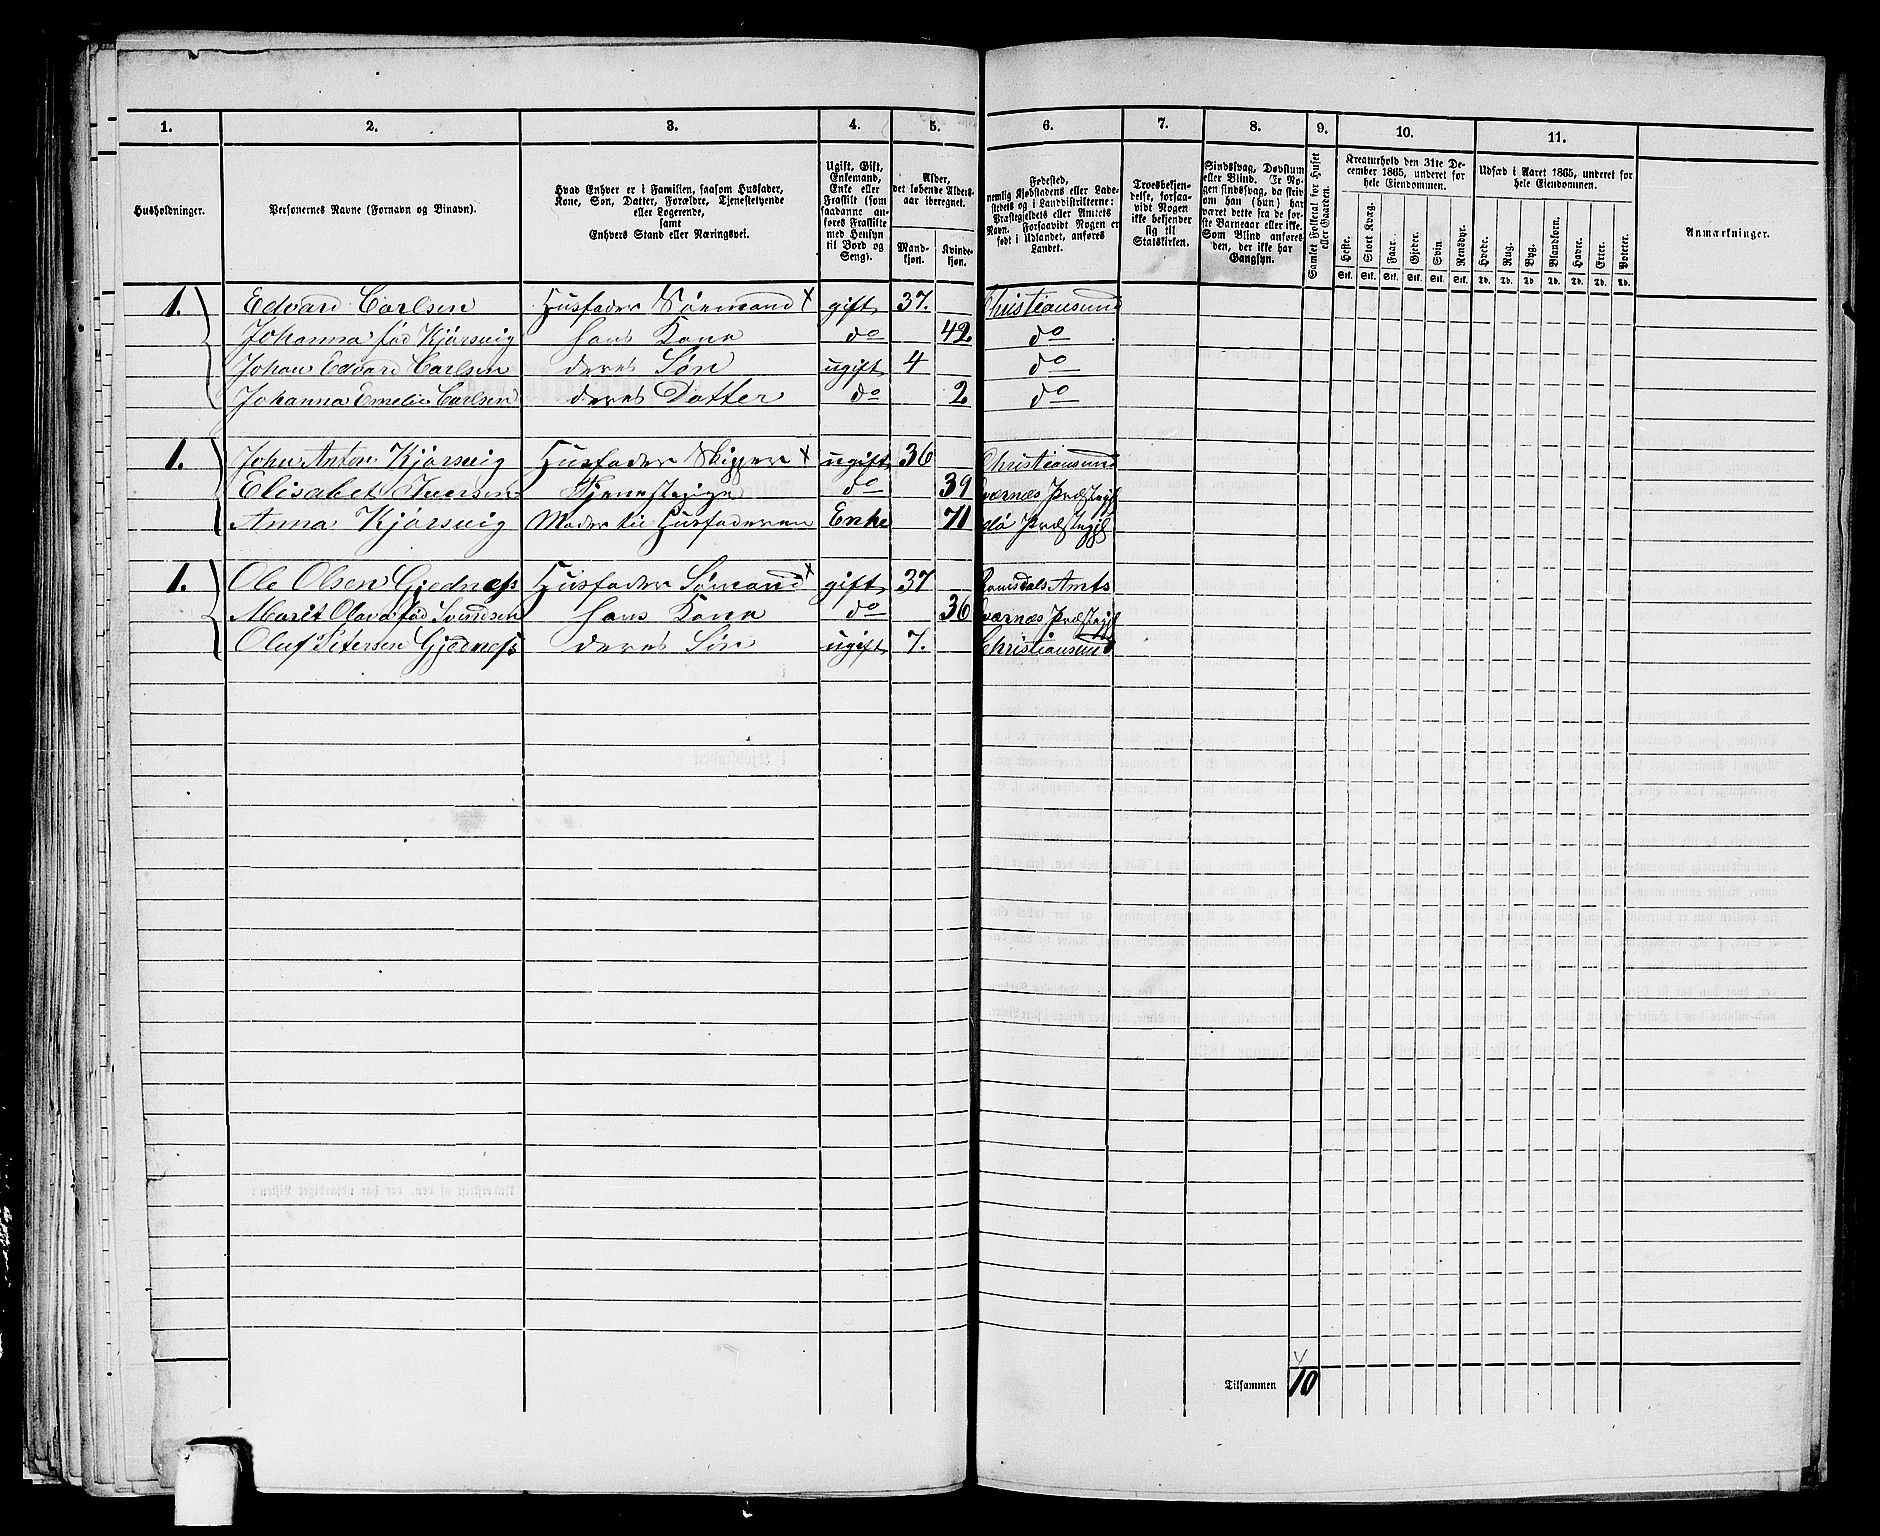 1. 2. 3. 4. 5. 6. 7. 8. 9. 10. 11.
Husholdninger.
Personernes Navne (Fornavn og Binavn).
Hvad Enhver er i Familien, saasom Husfader,
Kone, Søn, Datter, Forældre, Tjenestetyende
eller Logerende,
samt
Enhvers Stand eller Næringsvei.
Ugift, Gift,
Enkemand,
Enke eller
Fraskilt (som
saadanne an-
føres Fraskilte
med Hensyn
til Bord og
Seng).
Alder,
det løbende Alders-
aar iberegnet.
Mand-
kjøn.
Kvinde-
kjøn.
Fødested,
nemlig Kjøbstadens eller Lade-
stedets og i Landdistrikterne:
Præstegjeldets eller Amtets
Navn. Forsaavidt Nogen er
født i Udlandet, anføres
Landet.
Troesbekjen-
delse, forsaa-
vidt Nogen
ikke bekjender
sig til
Statskirken.
Sindssvag, Døvstum
eller Blind. Er No-
gen sindssvag, da skriv
om han (hun) har
været dette fra de før-
ste Barneaar eller ikke.
Som Blind anføres
den, der ikke har
Gangsyn.
Samlet Folketal for Huset
eller Gaarden.
Kreaturhold den 31te De-
cember 1865, underet for
hele Eiendommen.
Heste. Stort Kvæg. Faar. Gjeder. Svin. Rensdyr.
Stk. Stk. Stk. Stk. Stk. Stk.
Udsæd i Aaret 1865, underet for
hele Eiendommen.
Hvede. Rug. Byg. Blandkorn. Havre. Erter. Poteter.
Td. Td. Td. Td. Td. Td. Td.
Anmærkninger.
1. Edvard Carlsen Husfader Sømand x gift 37. Christiansund
Johanna fød Kjørsvig hans Kone do 42 do
Johan Edvard Carlsen deres Søn ugift 4 do
Johanna Emelie Carlsen deres Datter do 2 do
1. John Anton Kjørsvig Husfader Skipper x ugift 36 Christiansund
Elisabet Iversen Tjenestepige do 39 Qværnes Præstegjl
Anna Kjørsvig Moder til Husfaderen Enke 71 Edø Præstegjl
1. Ole Olsen Gjednæss Husfader Sømand x gift 37 Romsdals Amts
Marit Olava fød Svendsen hans Kone do 36 Qværnes Præstegjl
Oluf Petersen Gjednæss deres Søn ugift 7. Christiansund
Tilsammen 10